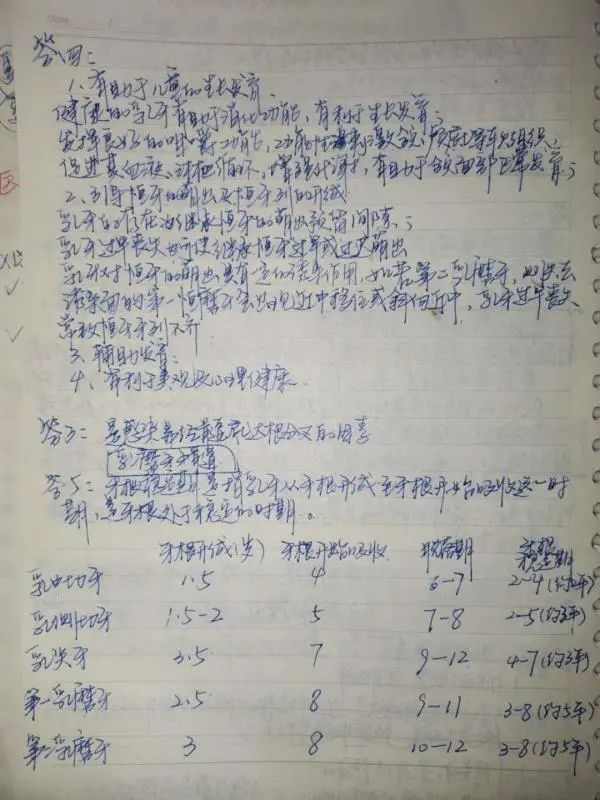 答四：
1、有助于儿童的生长发育
健康的乳牙有助于消化功能，有利于生长发育；
发挥良好的咀嚼功能，功能性刺激颌、颅底等软组织，
促进其血液、淋巴循环，增强代谢，有助于颌面部正常发育；
2、引导恒牙的萌出及恒牙列的形成
乳牙的存在为继承恒牙的萌出预留间隙；
乳牙过早丧失也可使继承恒牙过早或过迟萌出
乳牙对恒牙的萌出具有一定的诱导作用，如若第二乳磨牙，丧失
诱导面的第一恒磨牙会出现近中移位或斜向近中，乳牙过早丧失
常致恒牙牙列不齐
3、辅助发音；
4、有利于美观及心理健康
答3：是感染易经髓室底达根分叉的因素
乳磨牙
答5：牙根稳定期是指乳牙从牙根形成至牙根开始吸收这一时
期，是牙根处于稳定的时期。
牙根形成(岁) 牙根开始吸收 脱落期 牙根稳定期
乳中切牙 1.5 4 6-7 2-4(约2年)
乳侧切牙 1.5-2 5 7-8 2-5(约3年)
乳尖牙 3.5 7 9-12 4-7(约3年)
第一乳磨牙 2.5 8 9-11 3-8(约5年)
第二乳磨牙 3 8 10-12 3-8(约5年)